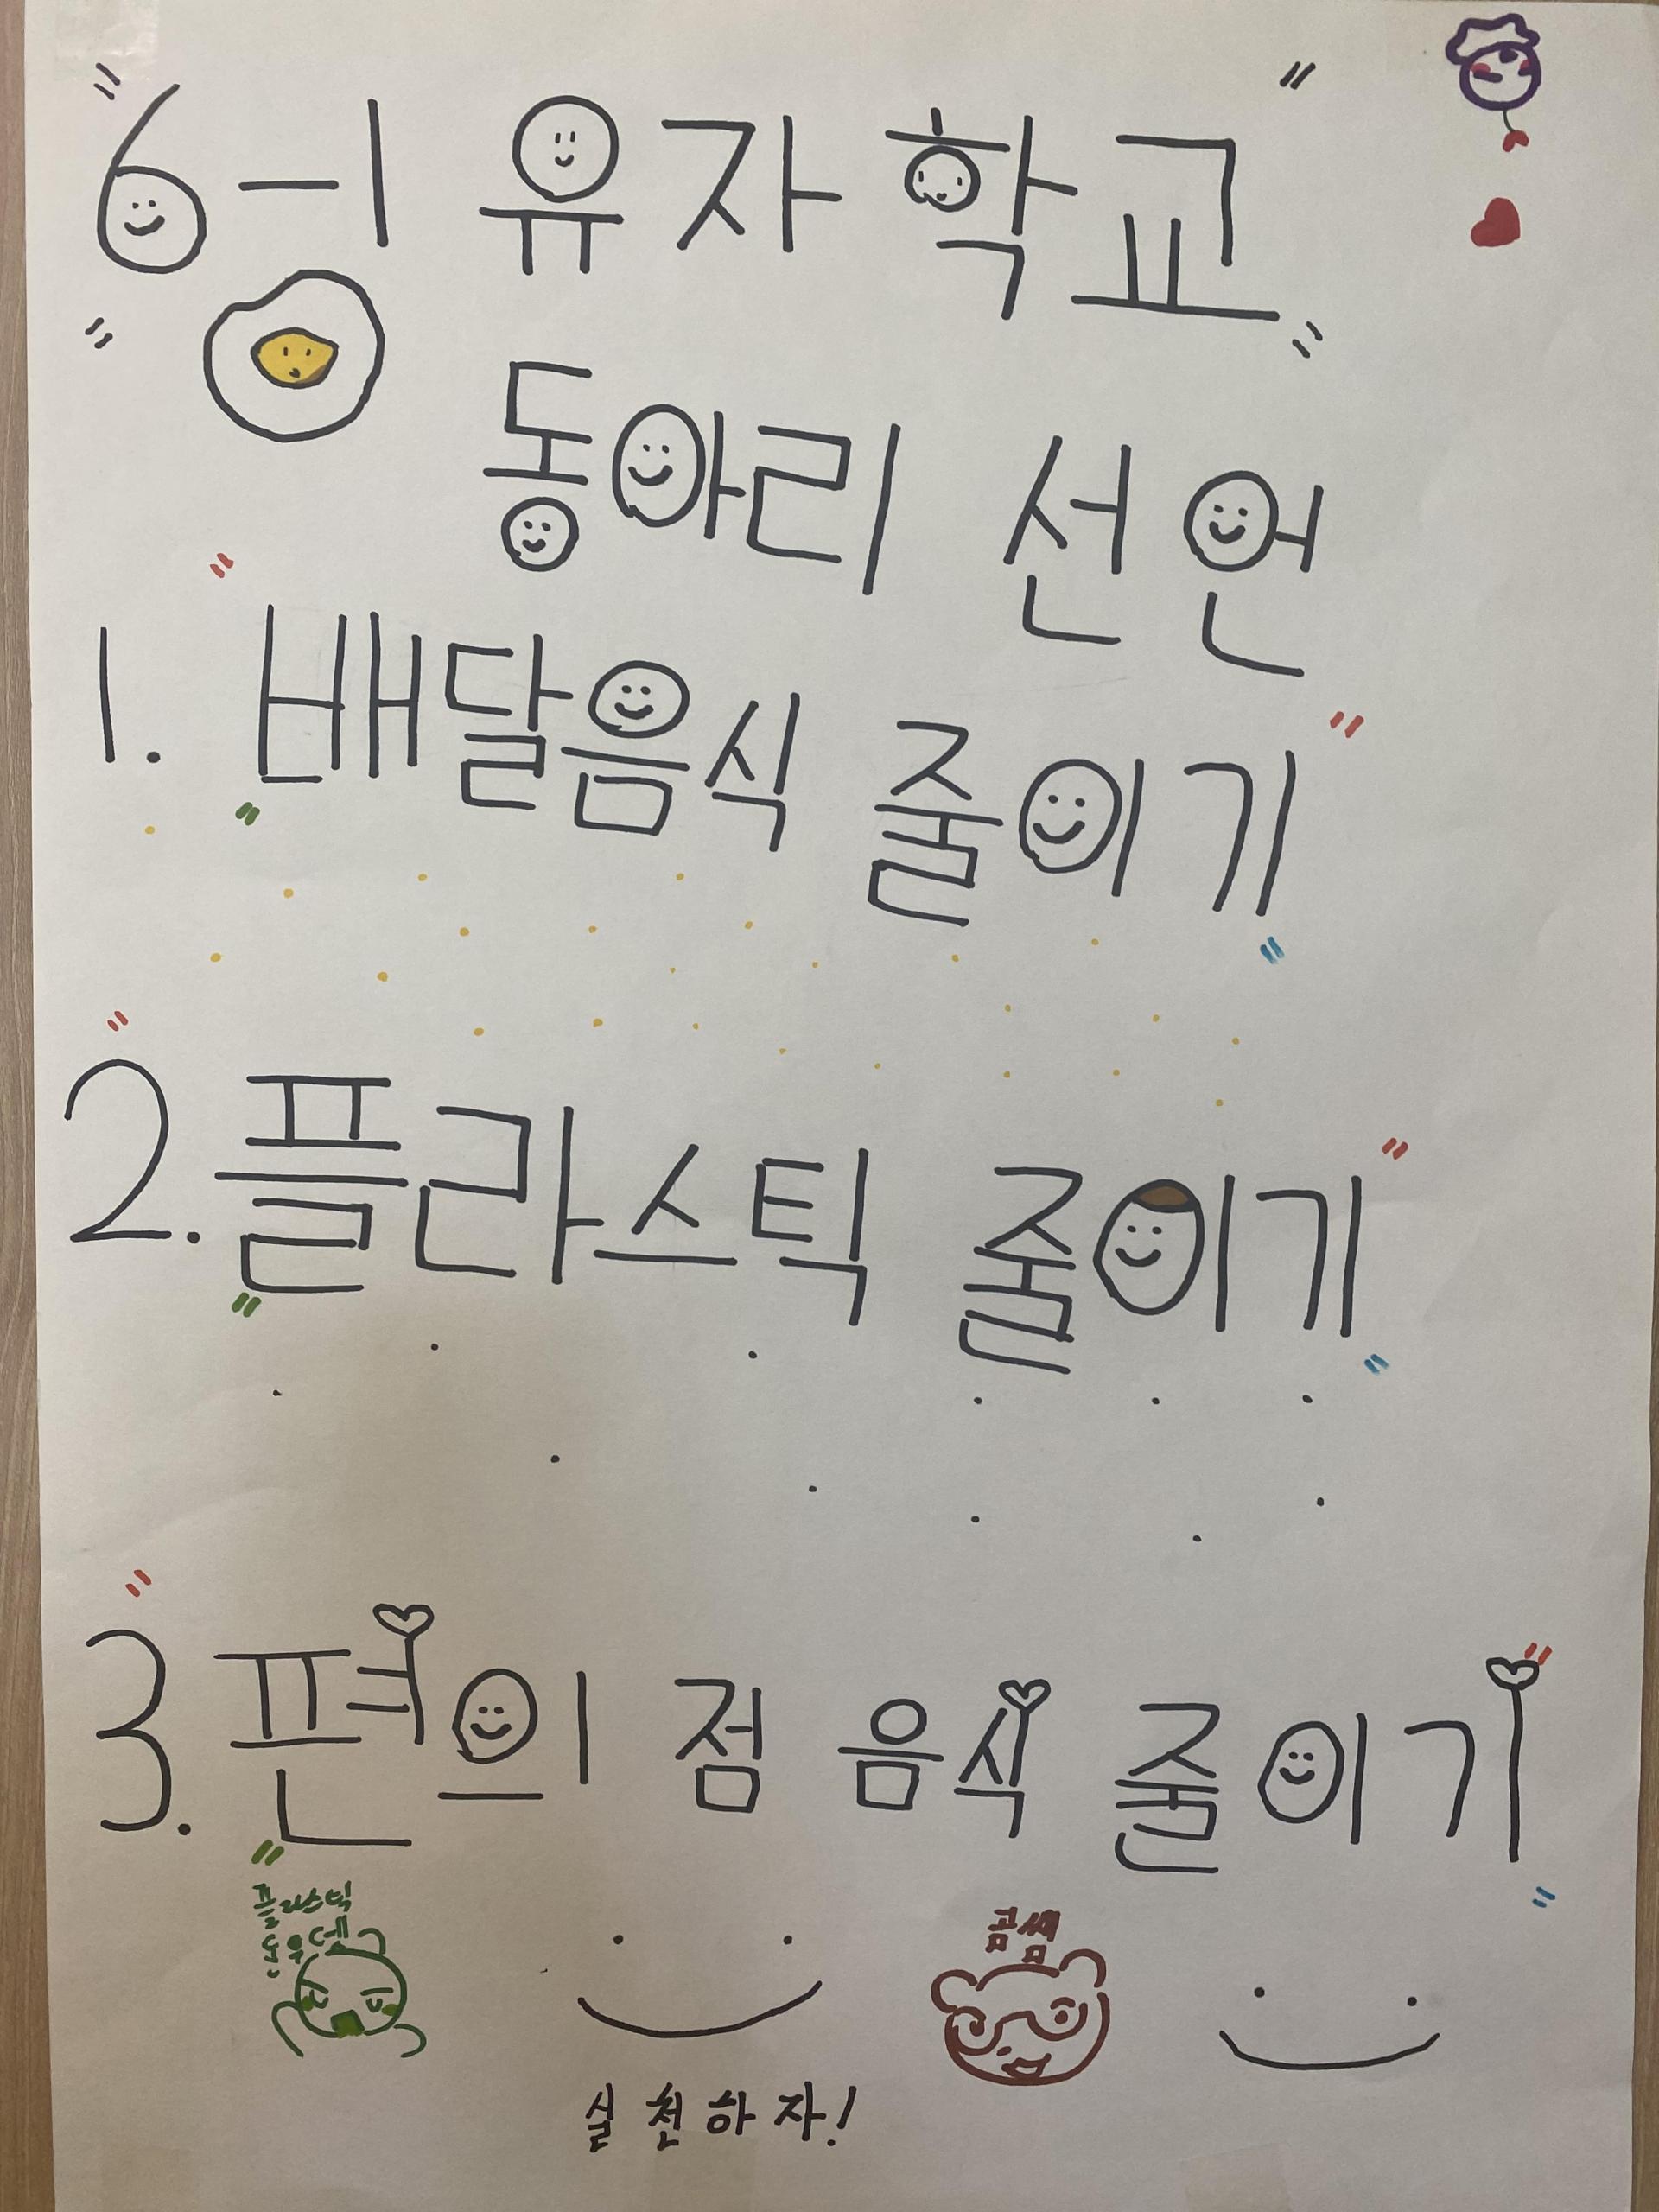 6-1 유자학교
동아리 선언
1. 배달음식 줄이기
2. 플라스틱 줄이기
3. 편의점 음식 줄이기
플라스틱
곰
실천하자!